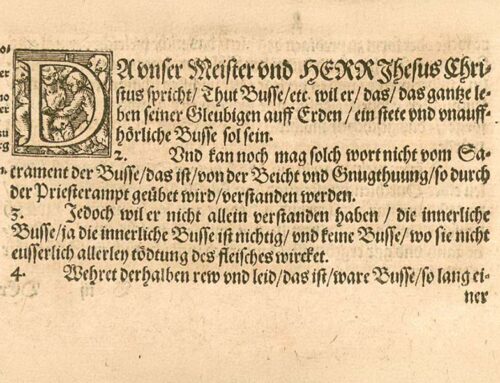 DA vnser Meister vnd HERR Jhesus Chri⸗
stus spricht/ Thut Busse/ etc. wil er/ das/ das gantze le⸗
ben seiner Gleubigen auff Erden/ ein stete vnd vnauff⸗
hörliche Busse sol sein.
2. Vnd kan noch mag solch wort nicht vom Sa⸗
crament der Busse/ das ist/ von der Beicht vnd Gnugthuung/ so durch
der Priesterampt geübet wird/ verstanden werden.
3. Jedoch wil er nicht allein verstanden haben/ die innerliche
Busse/ ja die innerliche Busse ist nichtig/ vnd keine Busse/ wo sie nicht
eusserlich allerley tödtung des fleisches wircket.
4. Wehret derhalben rew vnd leid/ das ist/ ware Busse/ so lang ei⸗
ner